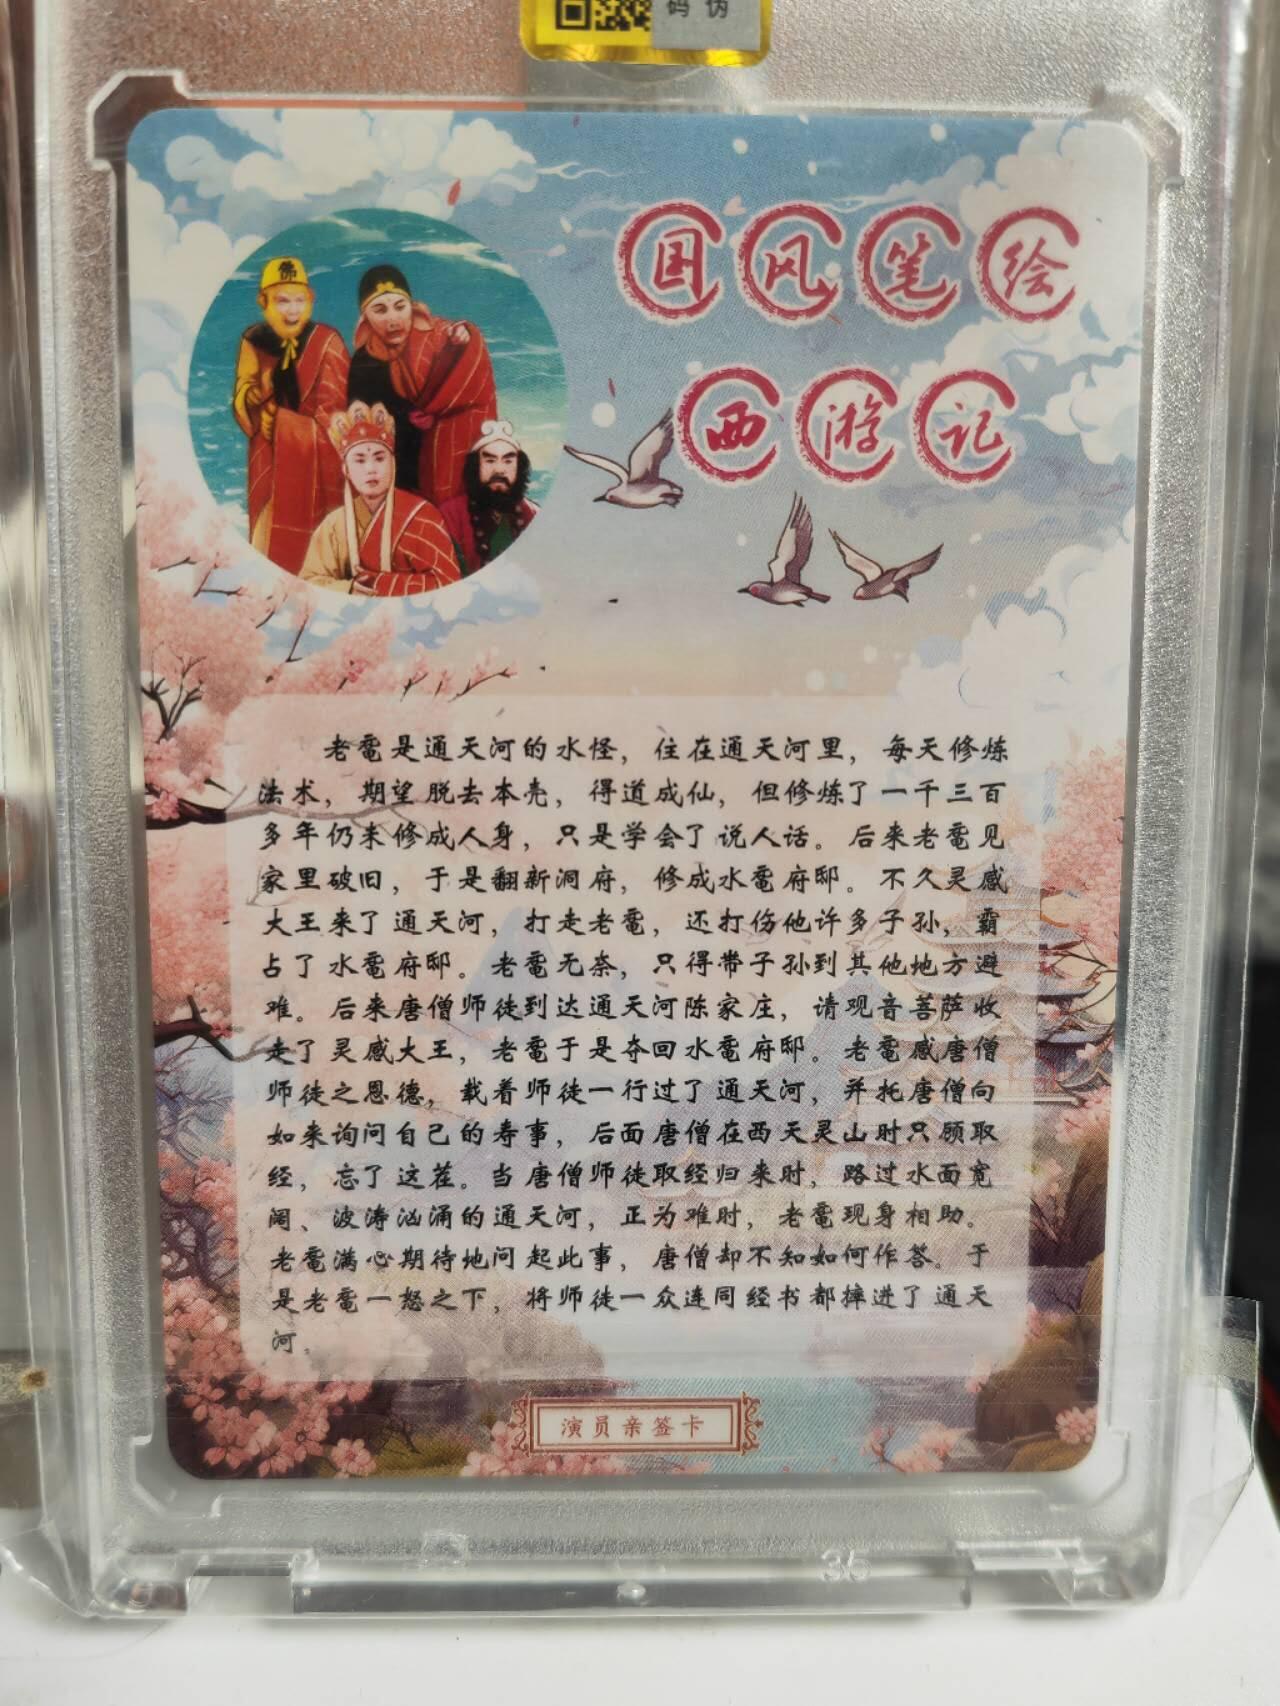 码 伪
佛
国风笔绘
西游记
老鼋是通天河的水怪，住在通天河里，每天修炼
法术，期望脱去本壳，得道成仙，但修炼了一千三百
多年仍未修成人身，只是学会了说人话。后来老鼋见
家里破旧，于是翻新洞府，修成水鼋府邸。不久灵感
大王来了通天河，打走老鼋，还打伤他许多子孙，霸
占了水鼋府邸。老鼋无奈，只得带子孙到其他地方避
难。后来唐僧师徒到达通天河陈家庄，请观音菩萨收
走了灵感大王，老鼋于是夺回水鼋府邸。老鼋感唐僧
师徒之恩德，载着师徒一行过了通天河，并托唐僧向
如来询问自己的寿事，后面唐僧在西天灵山时只顾取
经，忘了这茬。当唐僧师徒取经归来时，路过水面宽
阔、波涛汹涌的通天河，正为难时，老鼋现身相助。
老鼋满心期待地问起此事，唐僧却不知如何作答。于
是老鼋一怒之下，将师徒一众连同经书都摔进了通天
河。
演员亲签卡
35